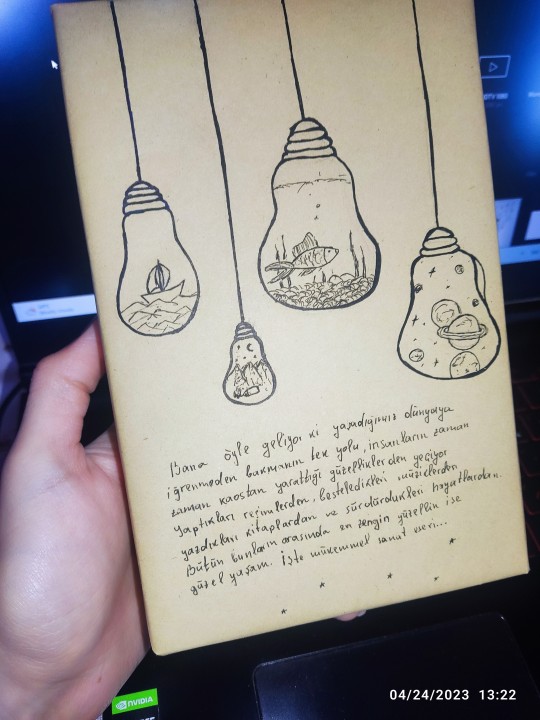 Bana öyle geliyor ki yaşadığımız dünyaya
iğrenmeden bakmanın tek yolu, insanların zaman
zaman kaostan yarattığı güzelliklerden geçiyor
yaptıkları resimlerden, besteledikleri müziklerden
yazdıkları kitaplardan ve sürdürdükleri hayatlardan.
Bütün bunların arasında en zengin güzellik ise
güzel yaşam. İşte mükemmel sanat eseri...
NVIDIA
04/24/2023 13:22